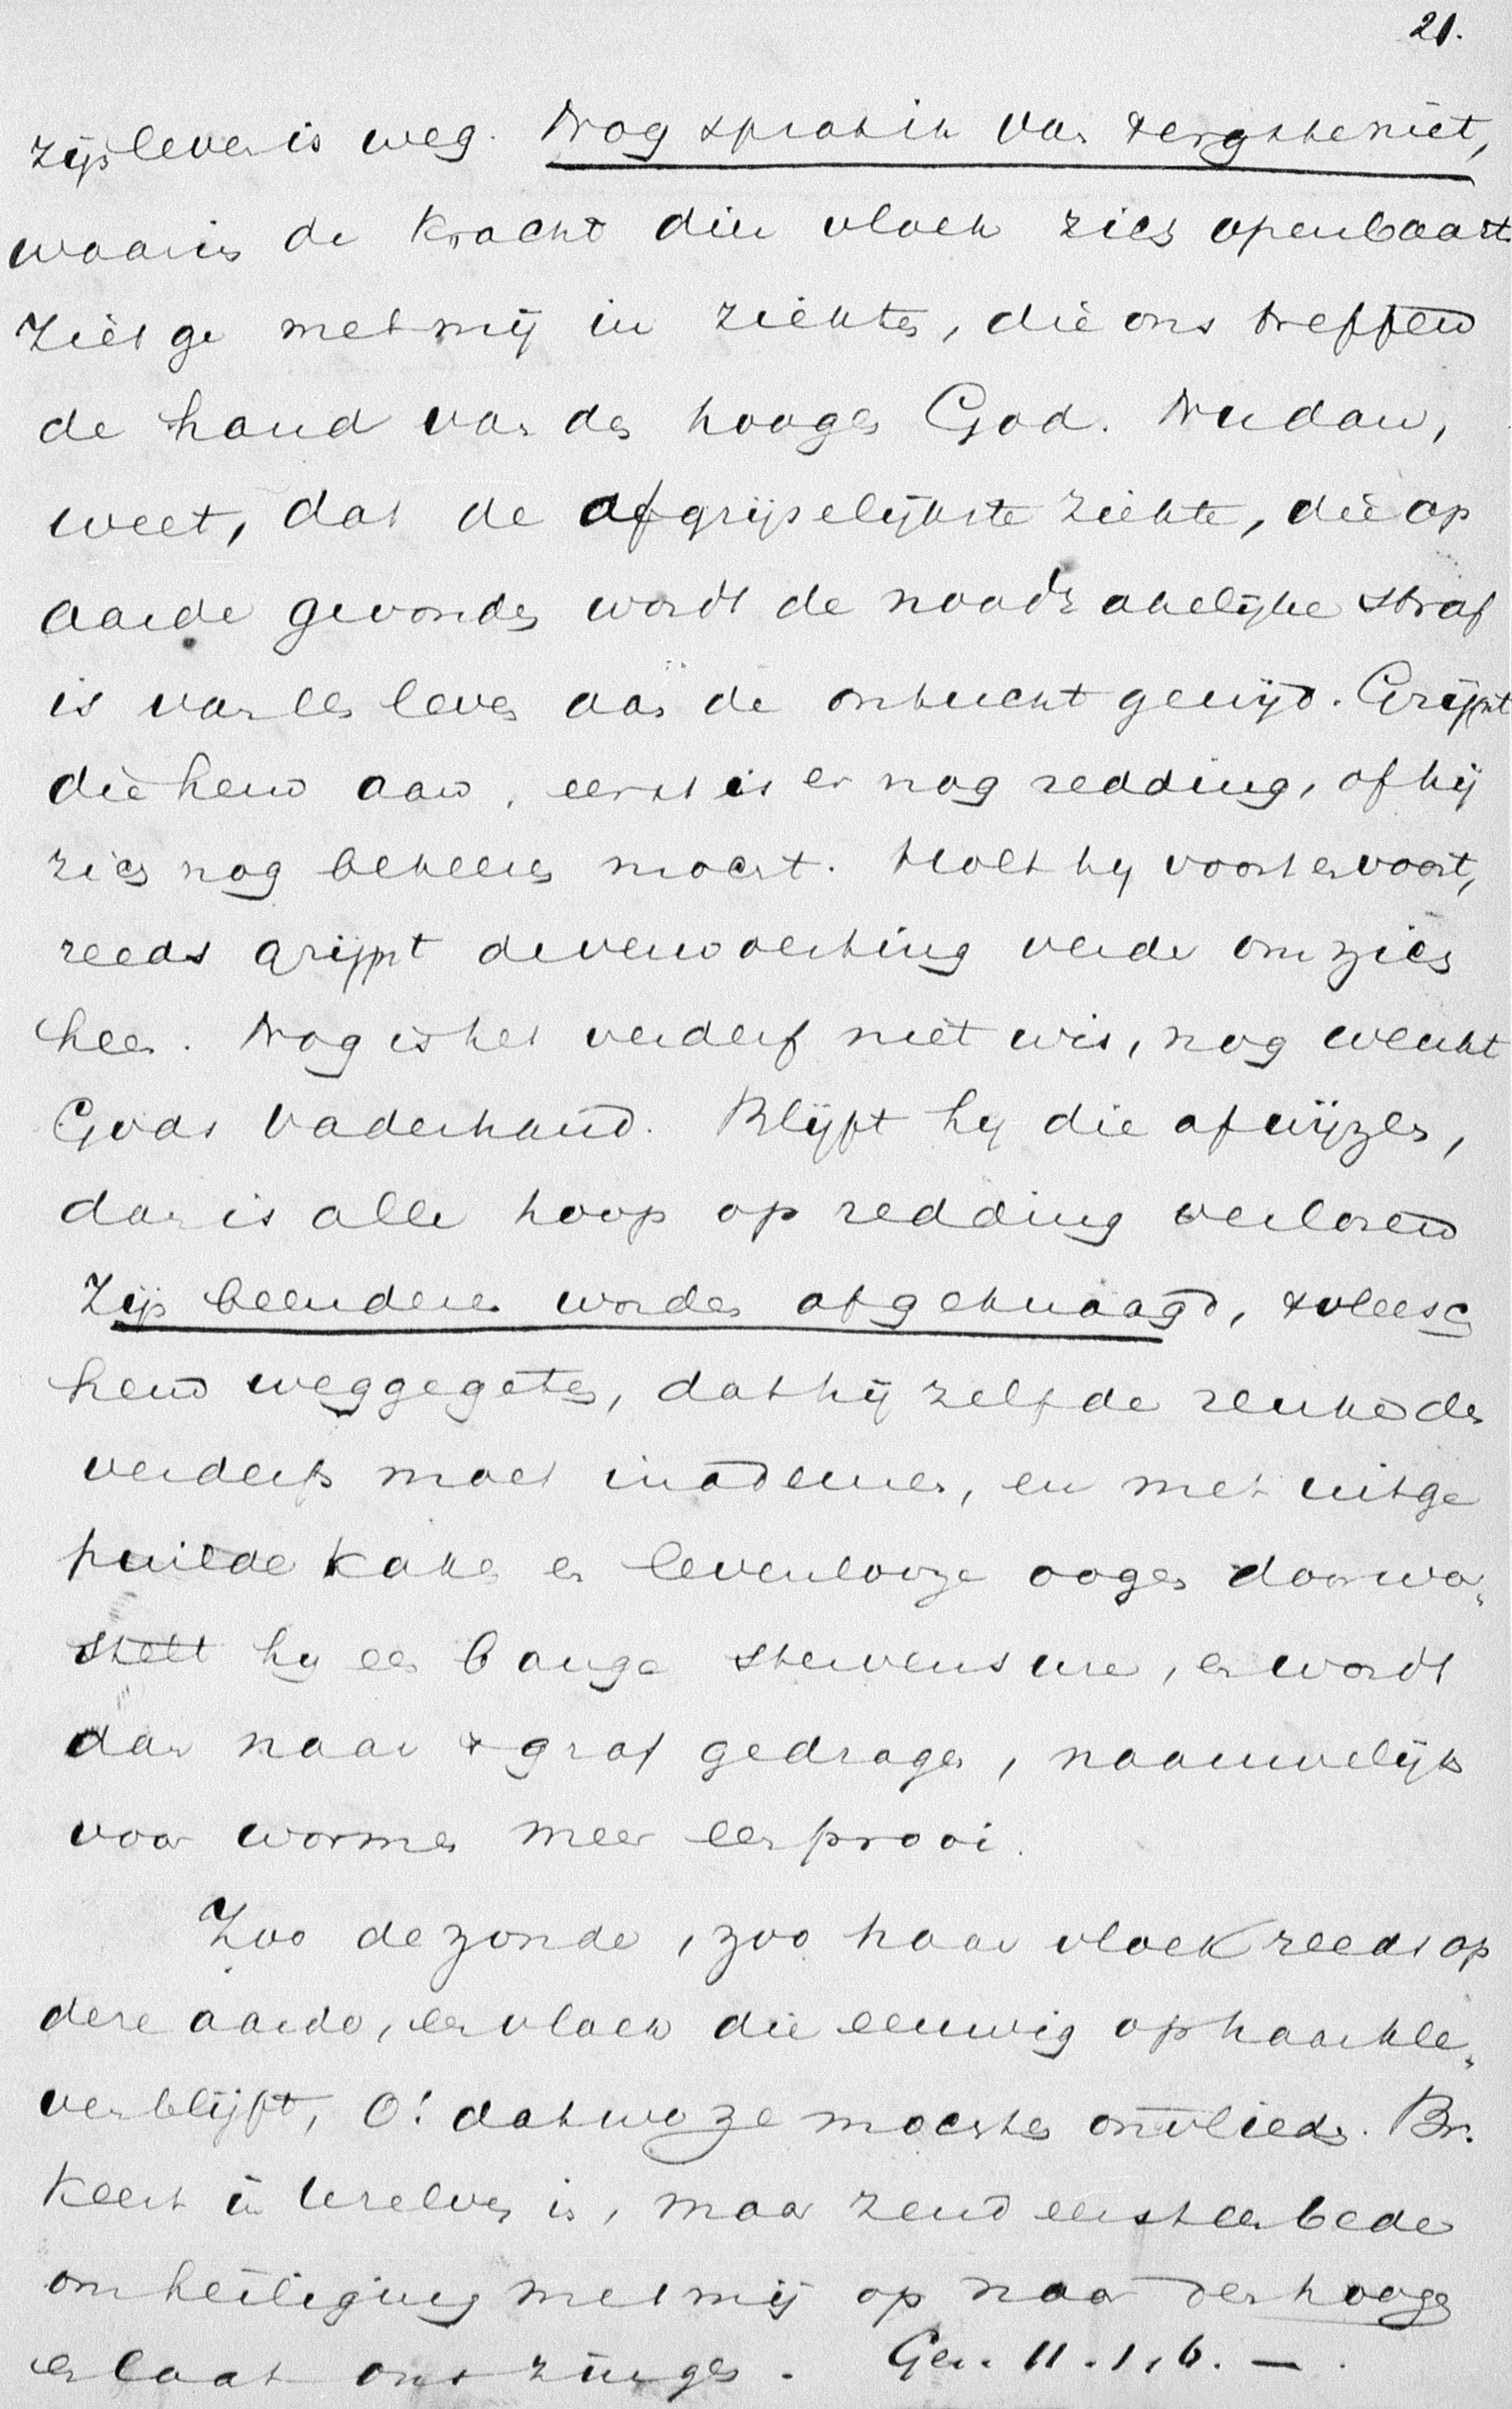 21.
zijn leven is weg. Nog sprak ik van 't ergste niet,
waarin de kracht dier vloek zich openbaart.
Ziet ge met mij in ziekten, die ons treffen
de hand van den hoogen God. Nu dan,
weet, dat de afgrijselijkste ziekte, die op
aarde gevonden wordt de noodzakelijke straf
is van een leven aan de ontucht gewijd. Grijpt
die hem aan, eerst is er nog redding, of hij
zich nog bekeeren mocht. Holt hij voort en voort,
reeds grijpt de verwoesting verder om zich
heen. Nog is het verderf niet wis, nog wenkt
Gods vaderhand. Blijft hij die afwijzen,
dan is alle hoop op redding verloren
Zijn beenderen worden afgeknaagd, 't vleesch
hem weggegeten, dat hij zelf de reuke des
verderfs moet inademen, en met uitge
puilde kaken en levenlooze oogen doorwor,
stelt hij een bange stervensure, en wordt
dan naar 't graf gedragen, naauwelijks
voor wormen meer een prooi.
Zoo de zonde, zoo haar vloek reeds op
deze aarde, een vloek die eeuwig op haar kle,
ven blijft, O! dat we ze mochten ontvlieden. Br.
Keert in Uzelven in, maar zend eerst een bede
om heiliging met mij op naar den hoogen
en laat ons zingen. Gez. 11. 1, 6. —.